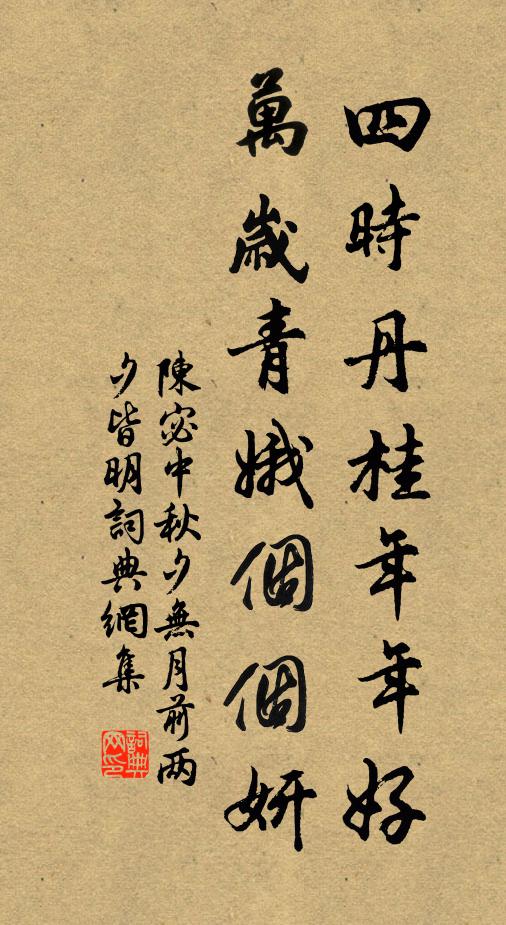 四時丹桂年年好
萬歲青娥個個妍
陳宓中秋夕無月前兩
夕皆明詞典網集
詞典網印